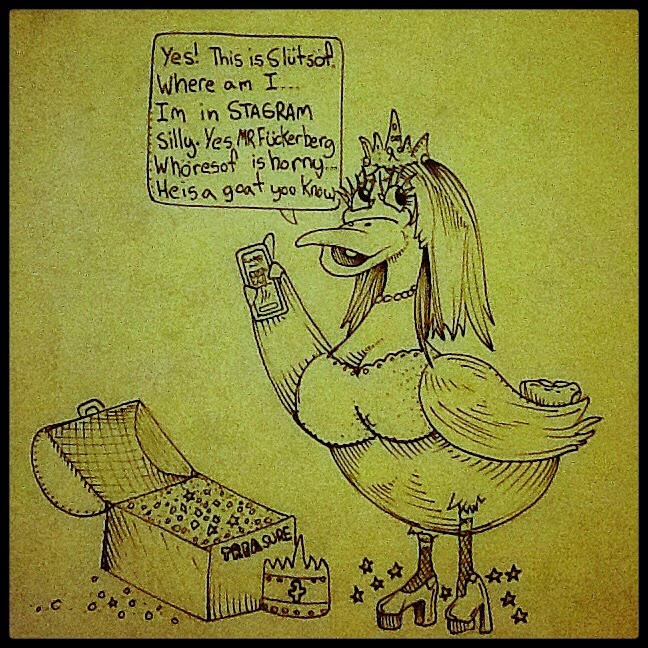 Yes! This is Slütsof.
Where am I...
Im in STAGRAM
Silly. Yes, MR. Fückerberg
Whöresof is horny...
He is a goat you know
TREASURE